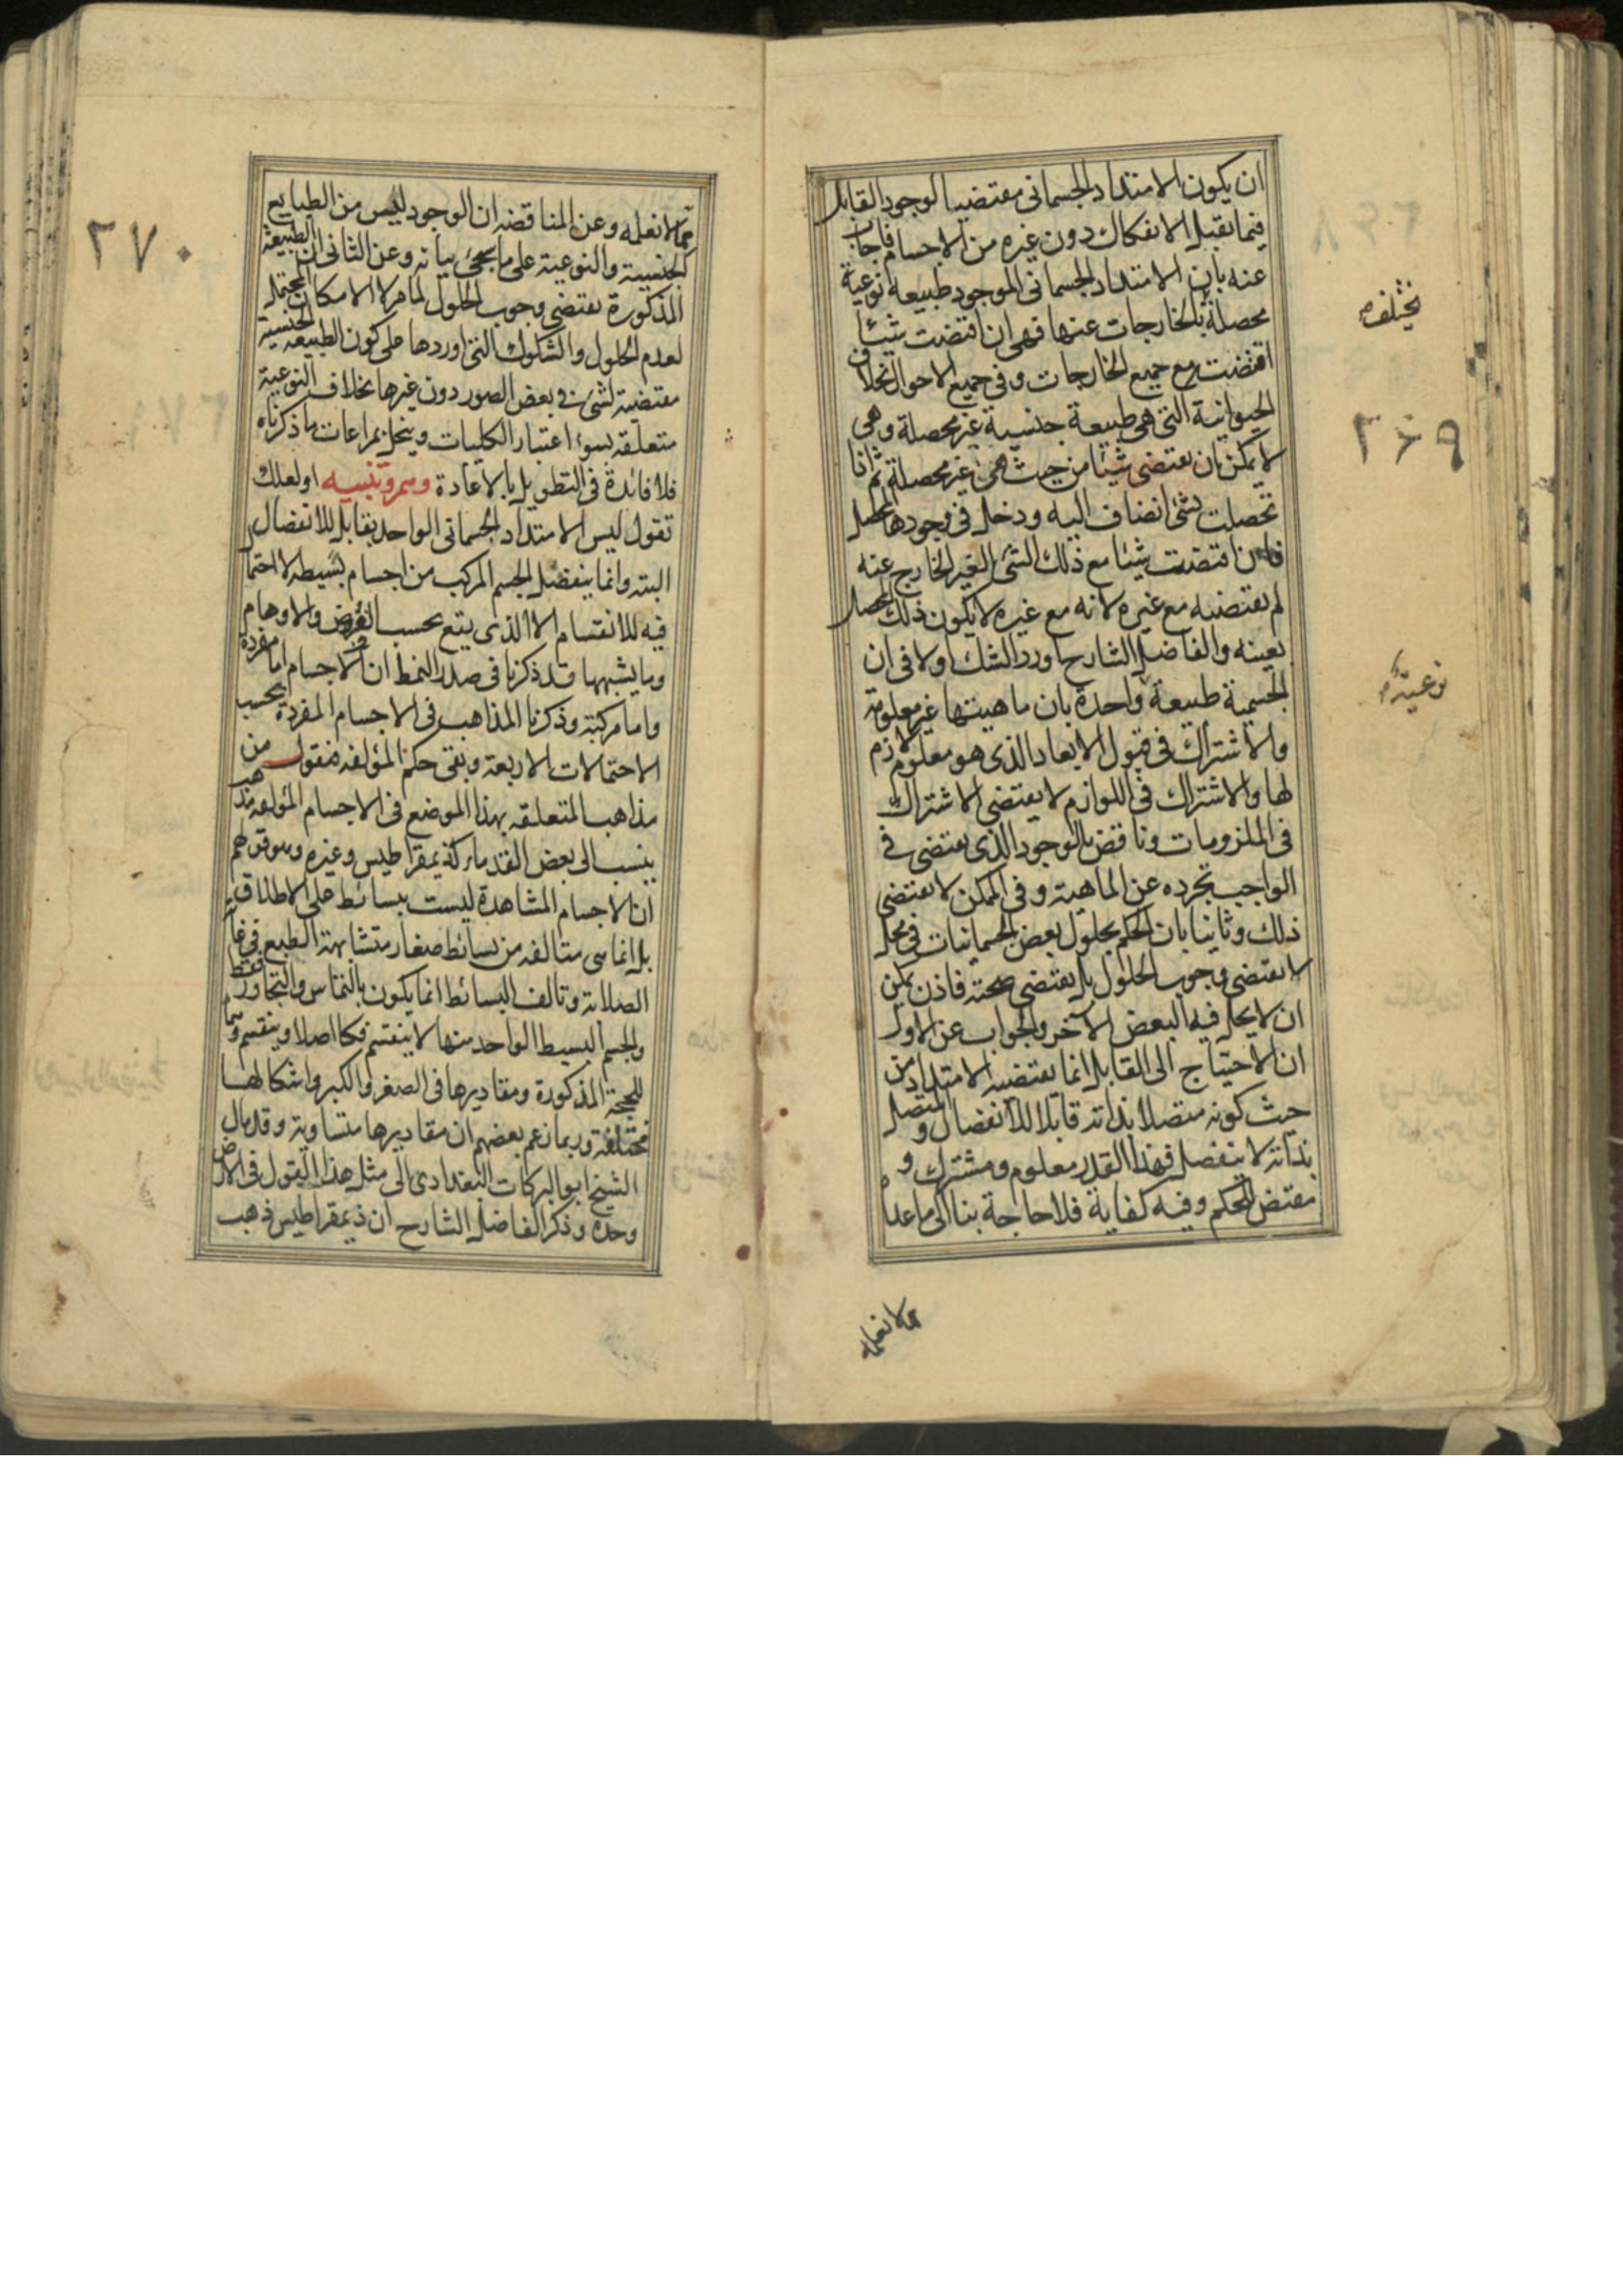 ان يكون الامتداد الجسمانى مقتضيا لوجود القابل
فيما يقبل الانفكاك دون غيره من الاجسام فاجاب
عنه بان الامتداد الجسمانى الموجود طبيعة نوعية
محصلة بالخارجات عنها فهى ان اقتضت شيئا
اقتضت مع جميع الخارجات وفى جميع الاحوال بخلاف
الحيوانية التى هى طبيعة جنسية غير محصلة وهى
لا يمكن ان يقتضى شيئا من حيث هى غير محصلة ثم اذا
تحصلت بشئ انضاف اليه ودخل فى وجودها المحصل
فان اقتضت شيئا مع ذلك الشئ الغير الخارج عنه
لم يقتضيه مع غيره لانه مع غيره لا يكون ذلك المحصل
بعينه والفاضل الشارح اورد الشك اولا فى ان
الجسمية طبيعة واحدة بان ماهيتها غير معلومة
والاشتراك فى قبول الابعاد الذى هو معلوم لازم
لها والاشتراك فى اللوازم لا يقتضى الاشتراك
فى الملزومات وناقض بالوجود الذى يقتضى فى
الواجب تجرده عن الماهية وفى الممكن لا يقتضى
ذلك وثانيا بان الحكم بحلول بعض الجسمانيات فى محل
لا يقتضى وجوب الحلول بل يقتضى صحته فاذن يمكن
ان لا يحل فيه البعض الآخر والجواب عن الاول
ان الاحتياج الى القابل انما يقتضيه الامتداد من
حيث كونه متصلا بذاته قابلا للانفصال والمتصل
بذاته لا ينفصل فهذا القدر معلوم ومشترك و
مقتض للحكم وفيه كفاية فلا حاجة بنا الى ما عداه
مما لا نعلمه
يختلف
٢٦٩
نوعية
مما لا نعلمه وعن المناقضة ان الوجود ليس من الطبايع
الجنسية والنوعية على ما يجئ بيانه وعن الثانى ان الطبيعة
المذكورة يقتضى وجوب الحلول لما مر لا الامكان المحتمل
لعدم الحلول والشكوك التى اوردها على كون الطبيعة الجنسية
مقتضية لشئ فى بعض الصور دون غيرها بخلاف النوعية
متعلقة بسوء اعتبار الكليات وينحل بمراعات ما ذكرناه
فلا فائدة فى التطويل بالاعادة وهم وتنبيه او لعلك
تقول ليس الامتداد الجسمانى الواحد بقابل للانفصال
البتة وانما ينفصل الجسم المركب من اجسام بسيطة لا احتمال
فيه للانقسام الا الذى يقع بحسب الفروض والاوهام
وما يشبهها قد ذكرنا فى صدر النمط ان الاجسام اما مفردة
واما مركبة وذكرنا المذاهب فى الاجسام المفردة بحسب
الاحتمالات الاربعة وبقى حكم المؤلفة فنقول من
مذاهب المتعلقة بهذا الموضع فى الاجسام المؤلفة مذهب
ينسب الى بعض القدماء كذيمقراطيس وغيره وهو قولهم
ان الاجسام المشاهدة ليست ببسائط على الاطلاق
بل انما هى متالفة من بسائط صغار متشابهة الطبع فى غاية
الصلابة وتالف البسائط انما يكون بالتماس والتجاور فقط
والجسم البسيط الواحد منها لا ينقسم فكا اصلا وينقسم وهما
للحجة المذكورة ومقاديرها فى الصغر والكبر واشكالها
مختلفة وربما زعم بعضهم ان مقاديرها متساوية وقد مال
الشيخ ابو البركات البغدادى الى مثل هذا القول فى الارض
وحدة وذكر الفاضل الشارح ان ذيمقراطيس ذهب
٢٧٠